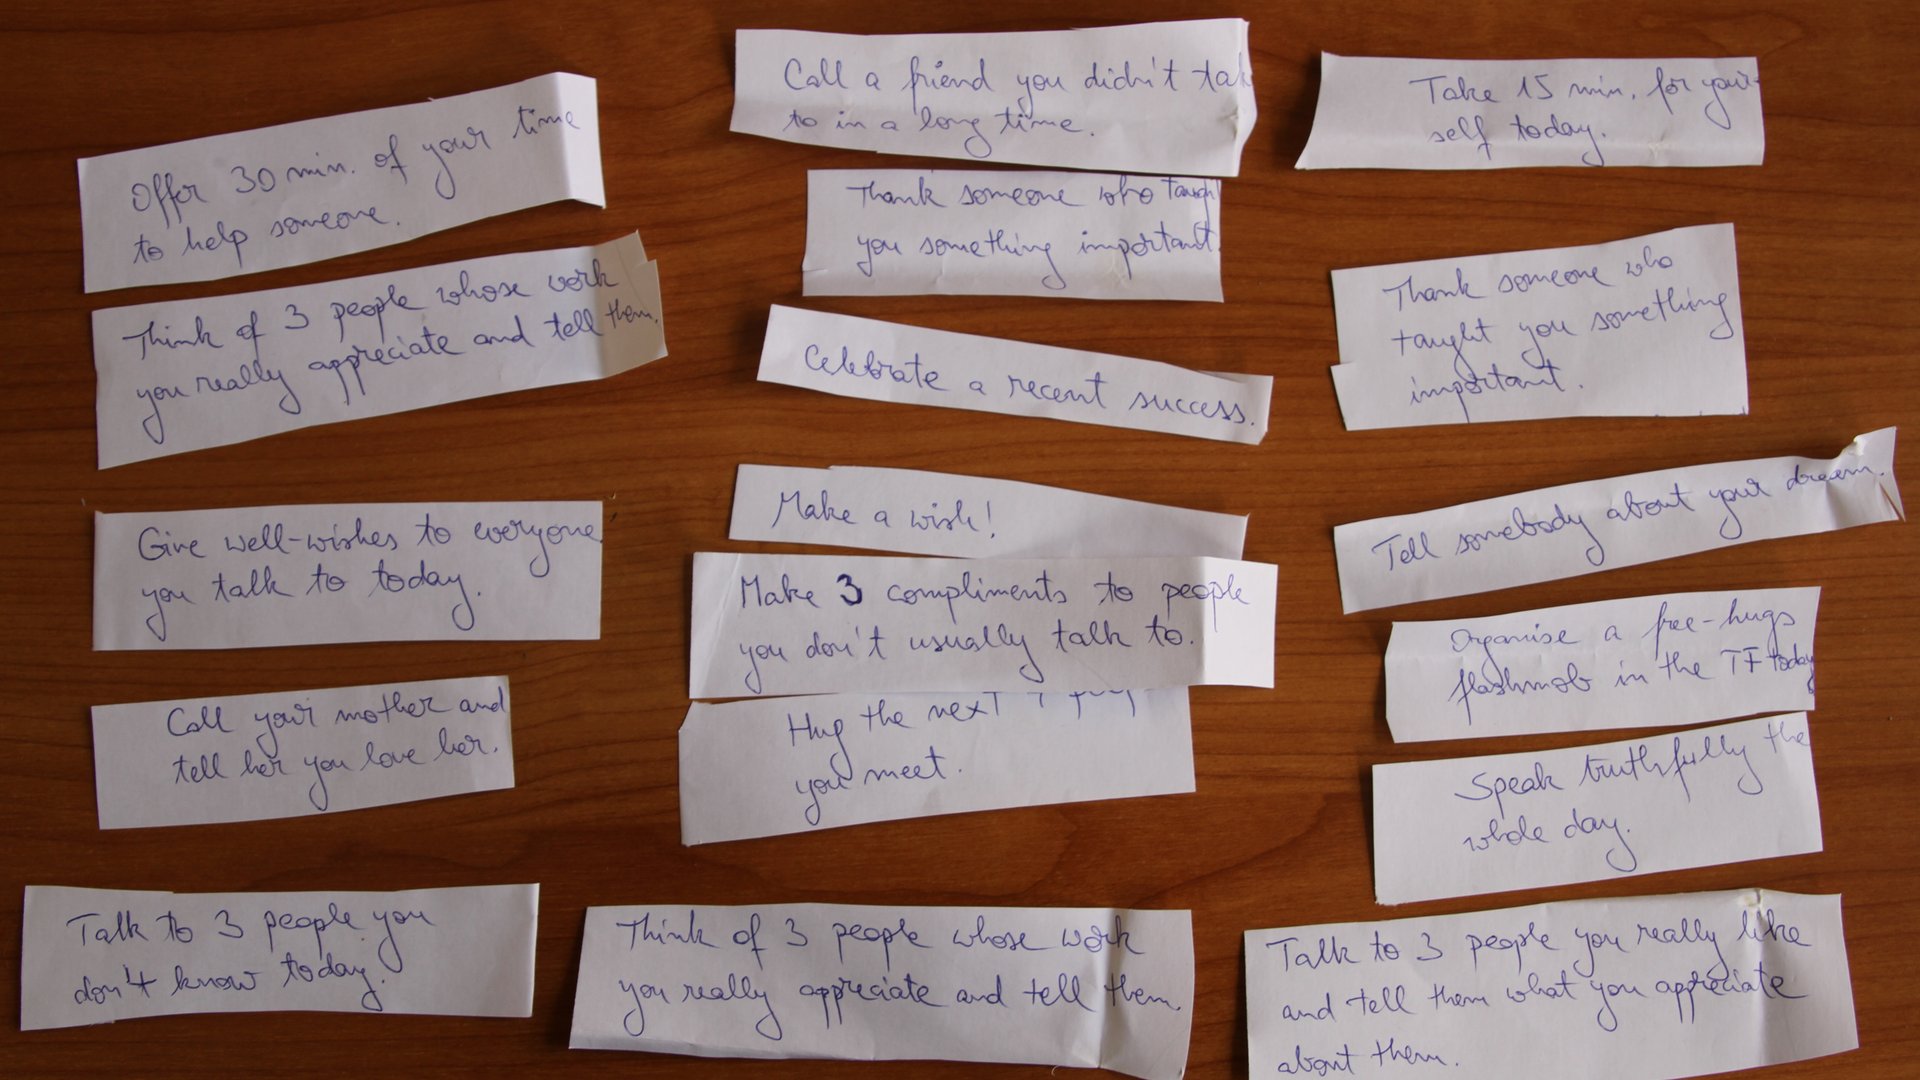 Offer 30 min. of your time
to help someone.
Think of 3 people whose work
you really appreciate and tell them.
Give well-wishes to everyone
you talk to today.
Call your mother and
tell her you love her.
Talk to 3 people you
don't know today.
Call a friend you didn't tal
to in a long time.
Thank someone who taugh
you something important.
Celebrate a recent success.
Make a wish!
Make 3 compliments to people
you don't usually talk to.
Hug the next
you meet.
Think of 3 people whose work
you really appreciate and tell them.
Take 15 min. for your-
self today.
Thank someone who
taught you something
important.
Tell somebody about your dream.
Organise a free-hugs
flashmob in the TF today
Speak truthfully the
whole day.
Talk to 3 people you really like
and tell them what you appreciate
about them.